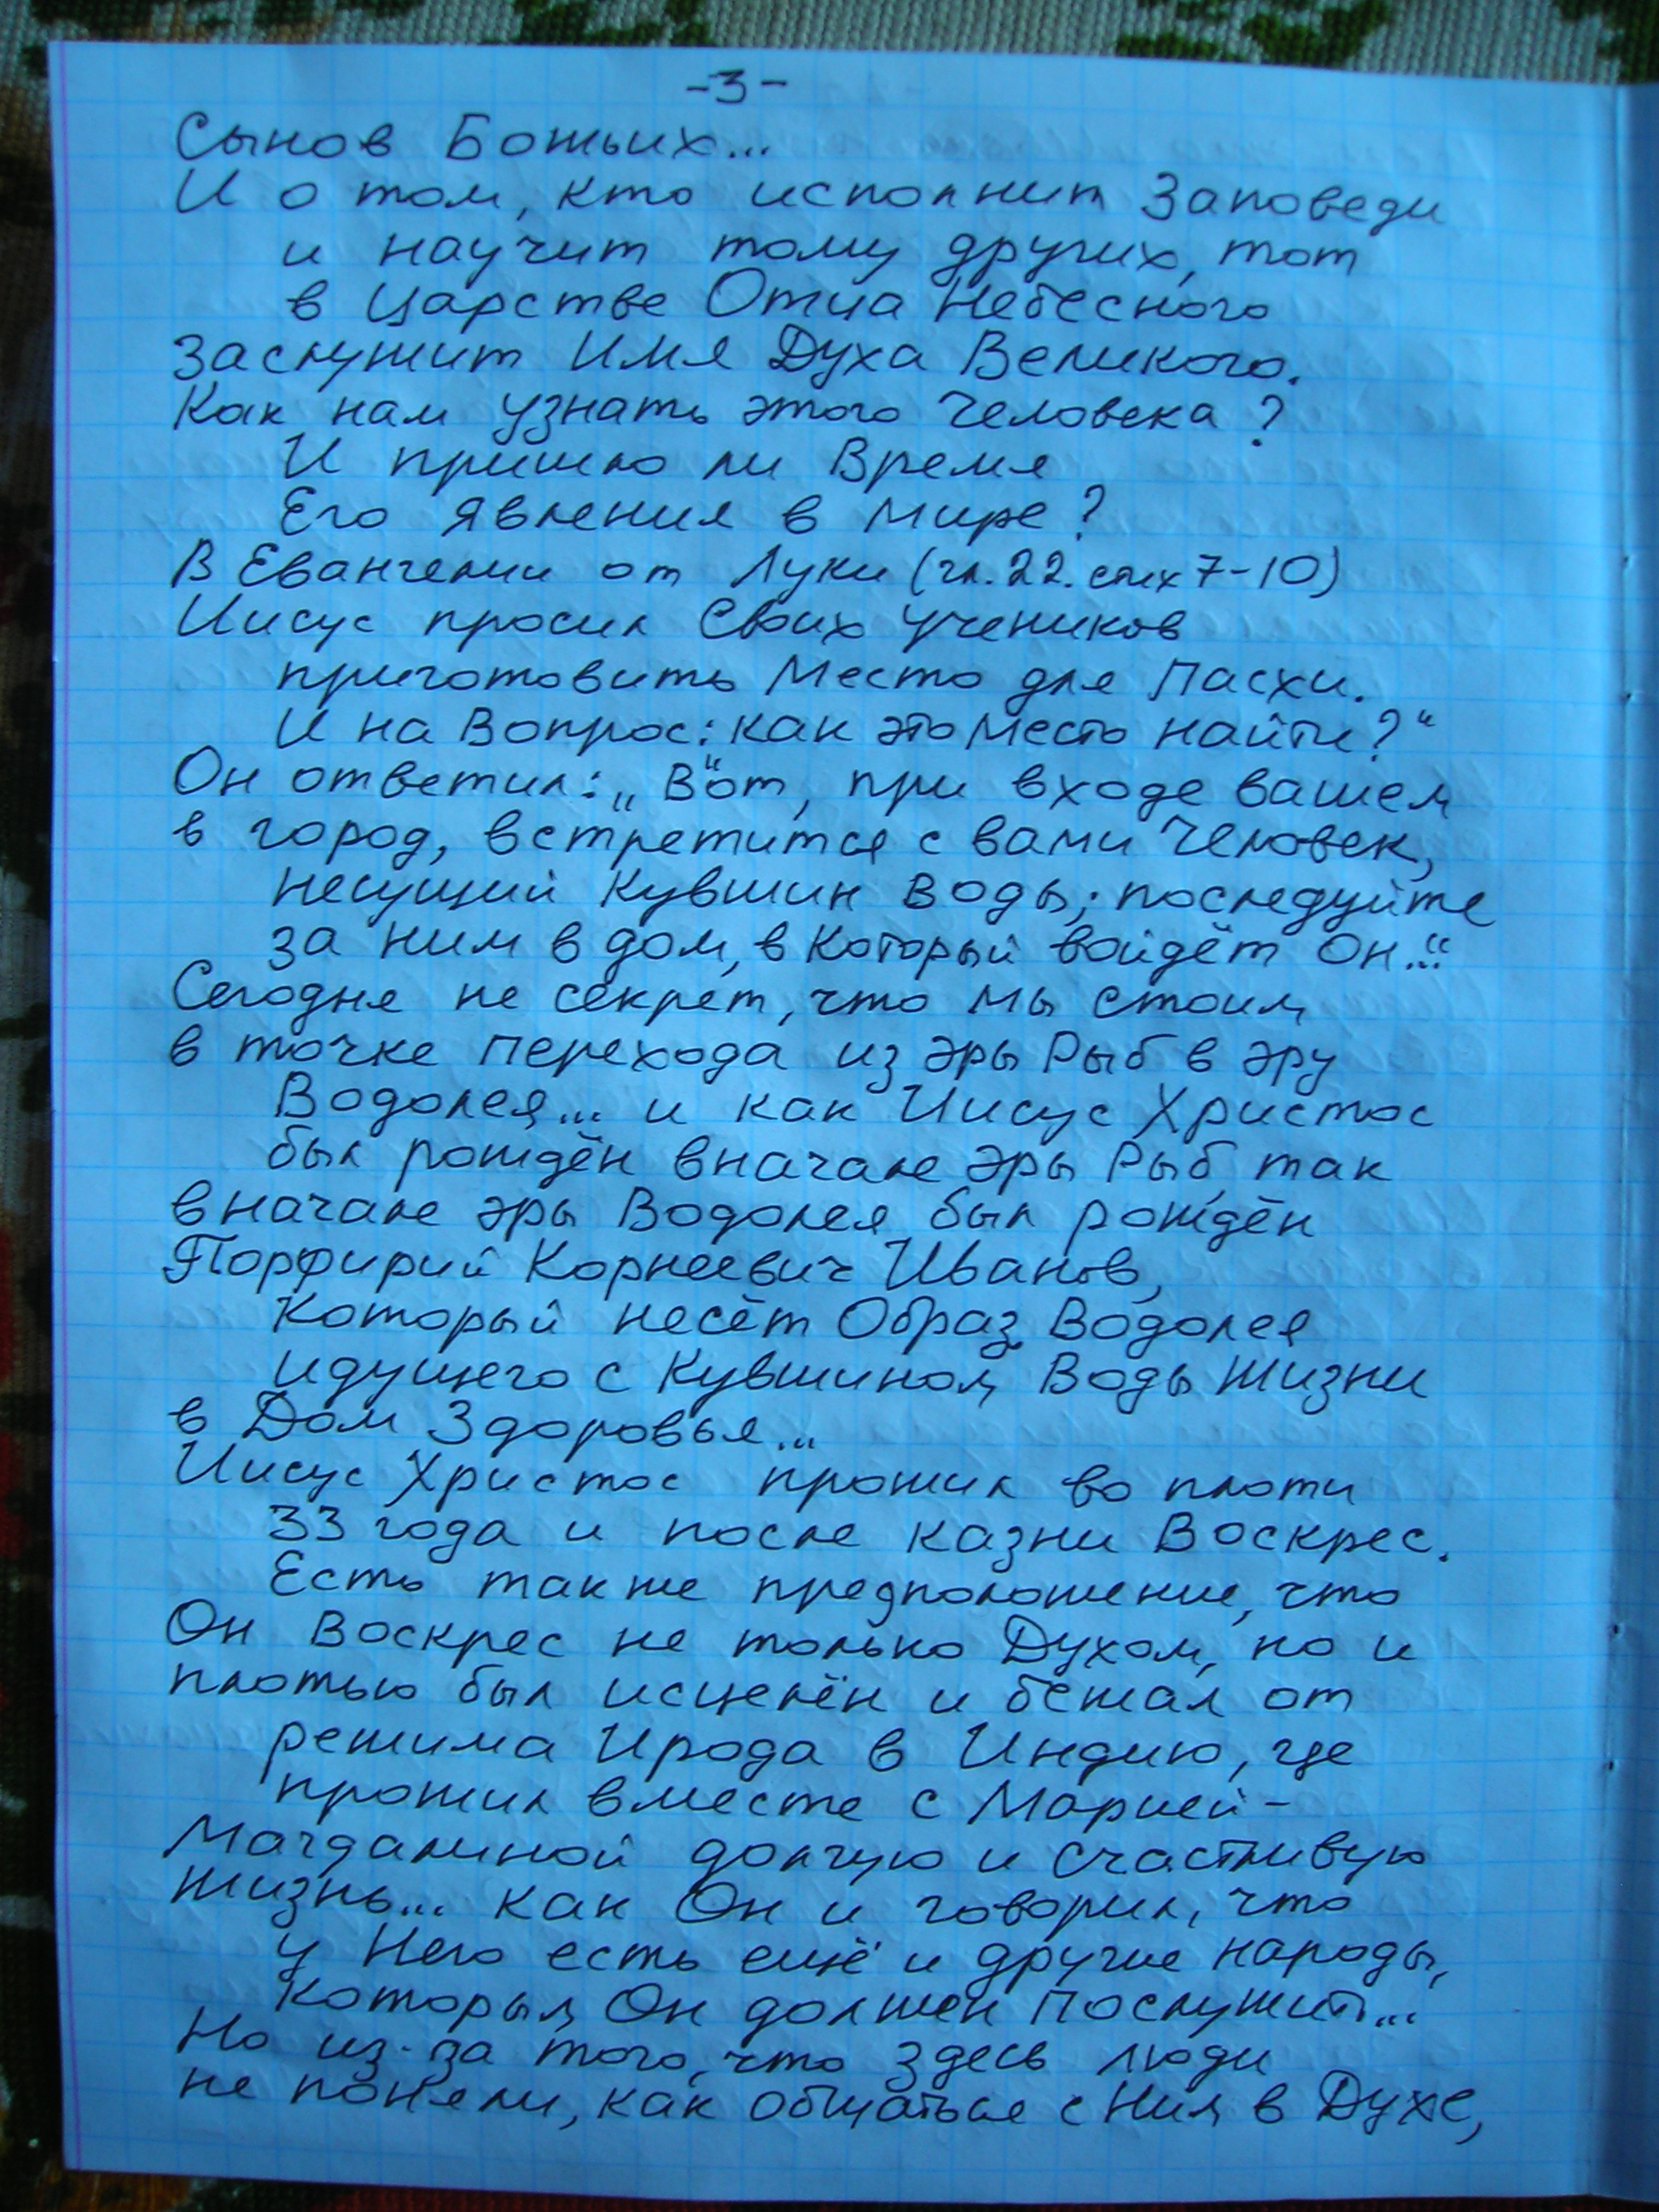 -3-
Сынов Божьих...
И о том, кто исполнит Заповеди
и научит тому других, тот
в Царстве Отца Небесного
Заслужит Имя Духа Великого.
Как нам узнать этого Человека?
И пришло ли Время
Его Явления в Мире?
В Евангелии от Луки (гл. 22. стих 7-10)
Иисус просил Своих Учеников
приготовить Место для Пасхи.
И на Вопрос: "как это Место найти?"
Он ответил: „Вот, при входе вашем
в город, встретится с вами Человек,
несущий Кувшин Воды; последуйте
за ним в дом, в Который войдёт Он..."
Сегодня не секрет, что Мы стоим
в точке перехода из эры Рыб в эру
Водолея... и как Иисус Христос
был рождён вначале эры Рыб, так
вначале эры Водолея был рождён
Порфирий Корнеевич Иванов,
Который несёт Образ Водолея
идущего с Кувшином Воды Жизни
в Дом Здоровья...
Иисус Христос прожил во плоти
33 года и после казни Воскрес.
Есть также предположение, что
Он Воскрес не только Духом, но и
плотью был исцелён и бежал от
режима Ирода в Индию, где
прожил вместе с Марией-
Магдалиной долгую и Счастливую
Жизнь... как Он и говорил, что
у Него есть ещё и другие народы,
Которым Он должен Послужить...
Но из-за того, что здесь люди
не поняли, как общаться с Ним в Духе,